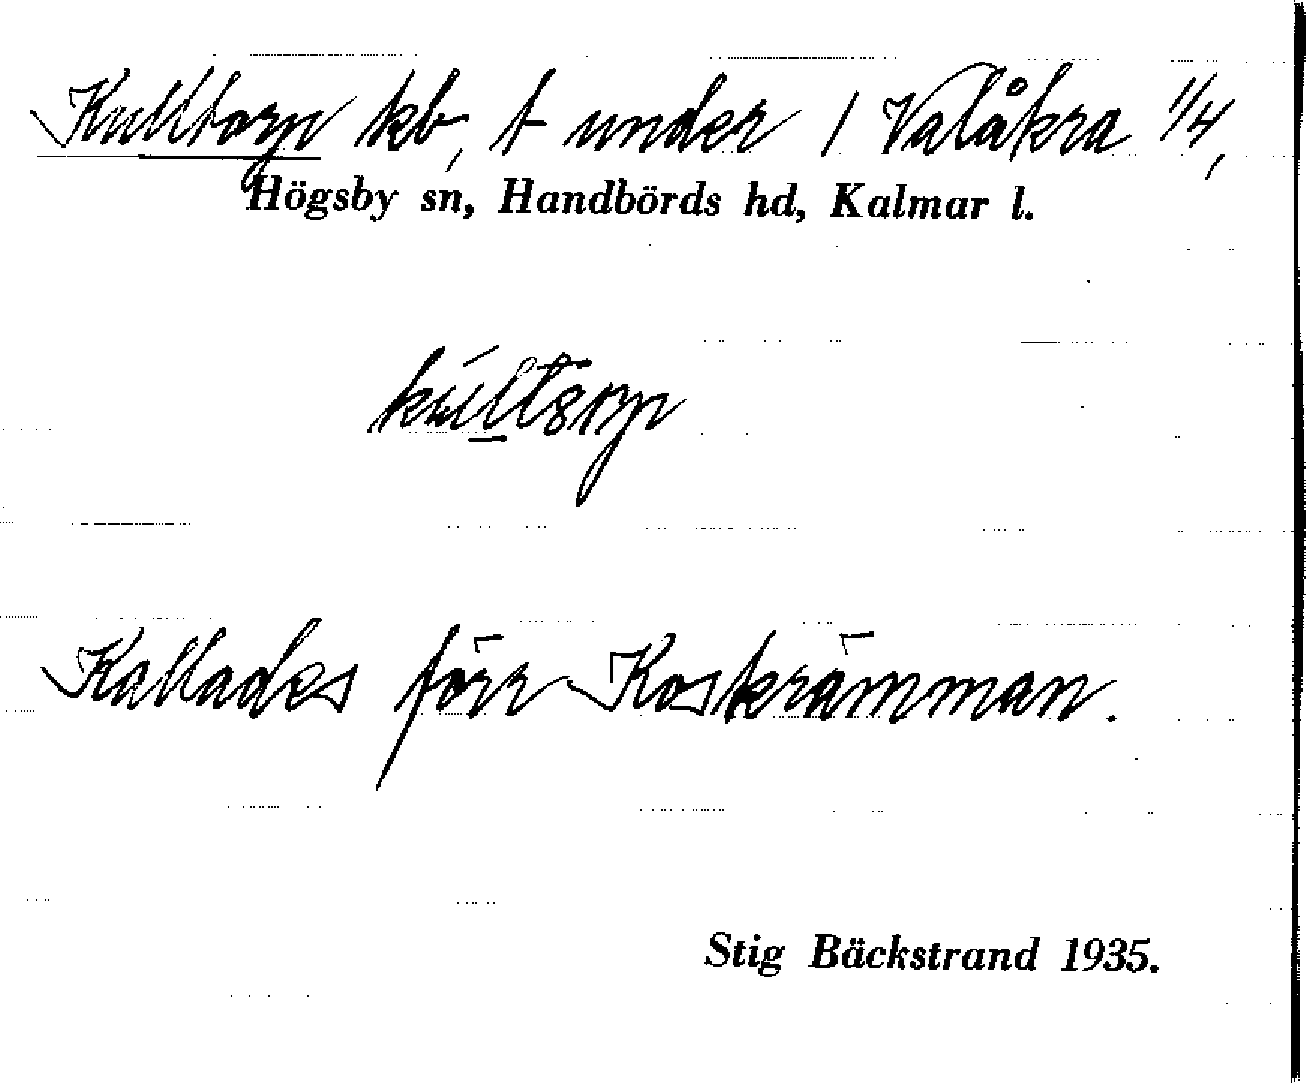 Kulltorp kb, t under 1 Valåkra 1/4,
Högsby sn, Handbörds hd, Kalmar l.
Kallades förr Koskrämman.
Stig Bäckstrand 1935.